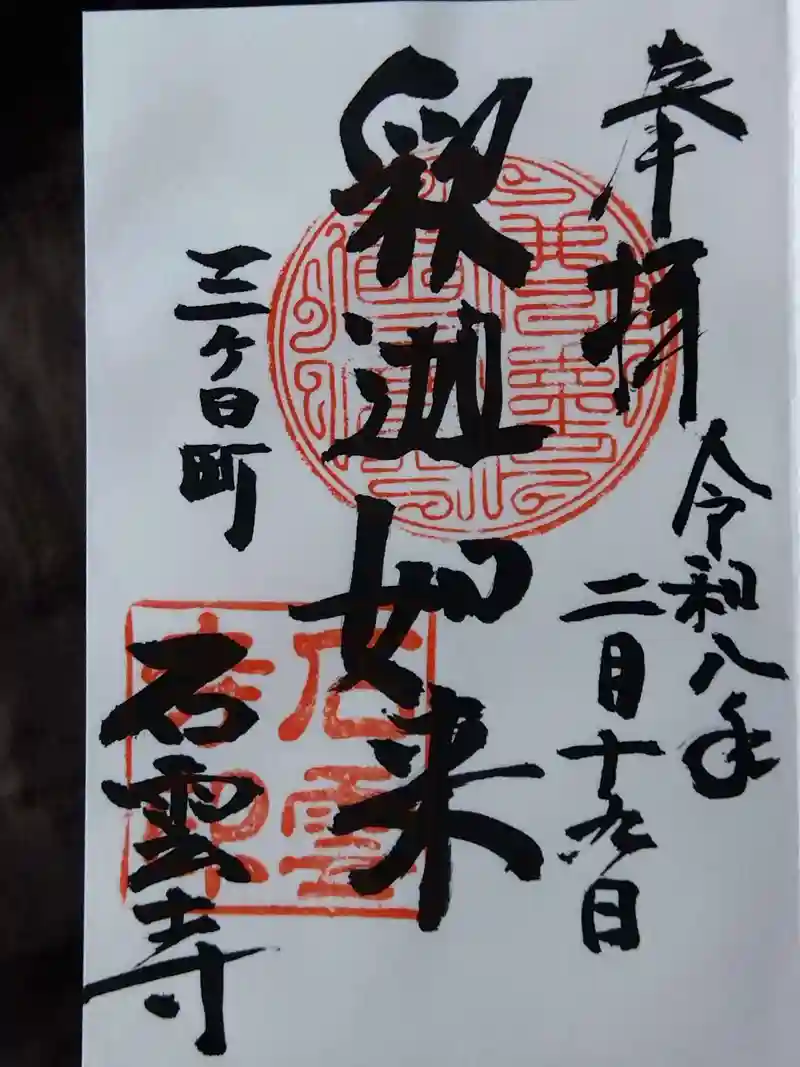 奉拝
令和八年
二月十九日
釈迦如来
三ヶ日町
石雲寺
石雲
寺印